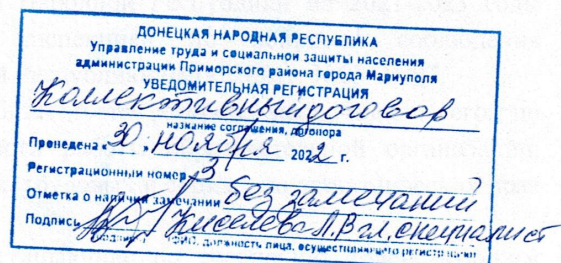 ДОНЕЦКАЯ НАРОДНАЯ РЕСПУБЛИКА
Управление труда и социальной защиты населения
администрации Приморского района города Мариуполя
УВЕДОМИТЕЛЬНАЯ РЕГИСТРАЦИЯ
Коллективный договор
название соглашения, договора
Проведена « 30 » ноября 2022 г.
Регистрационный номер 3
Отметка о наличии замечаний без замечаний
Подпись Киселева Л.В гл. специалист
ФИО, должность лица, осуществляющего регистрацию